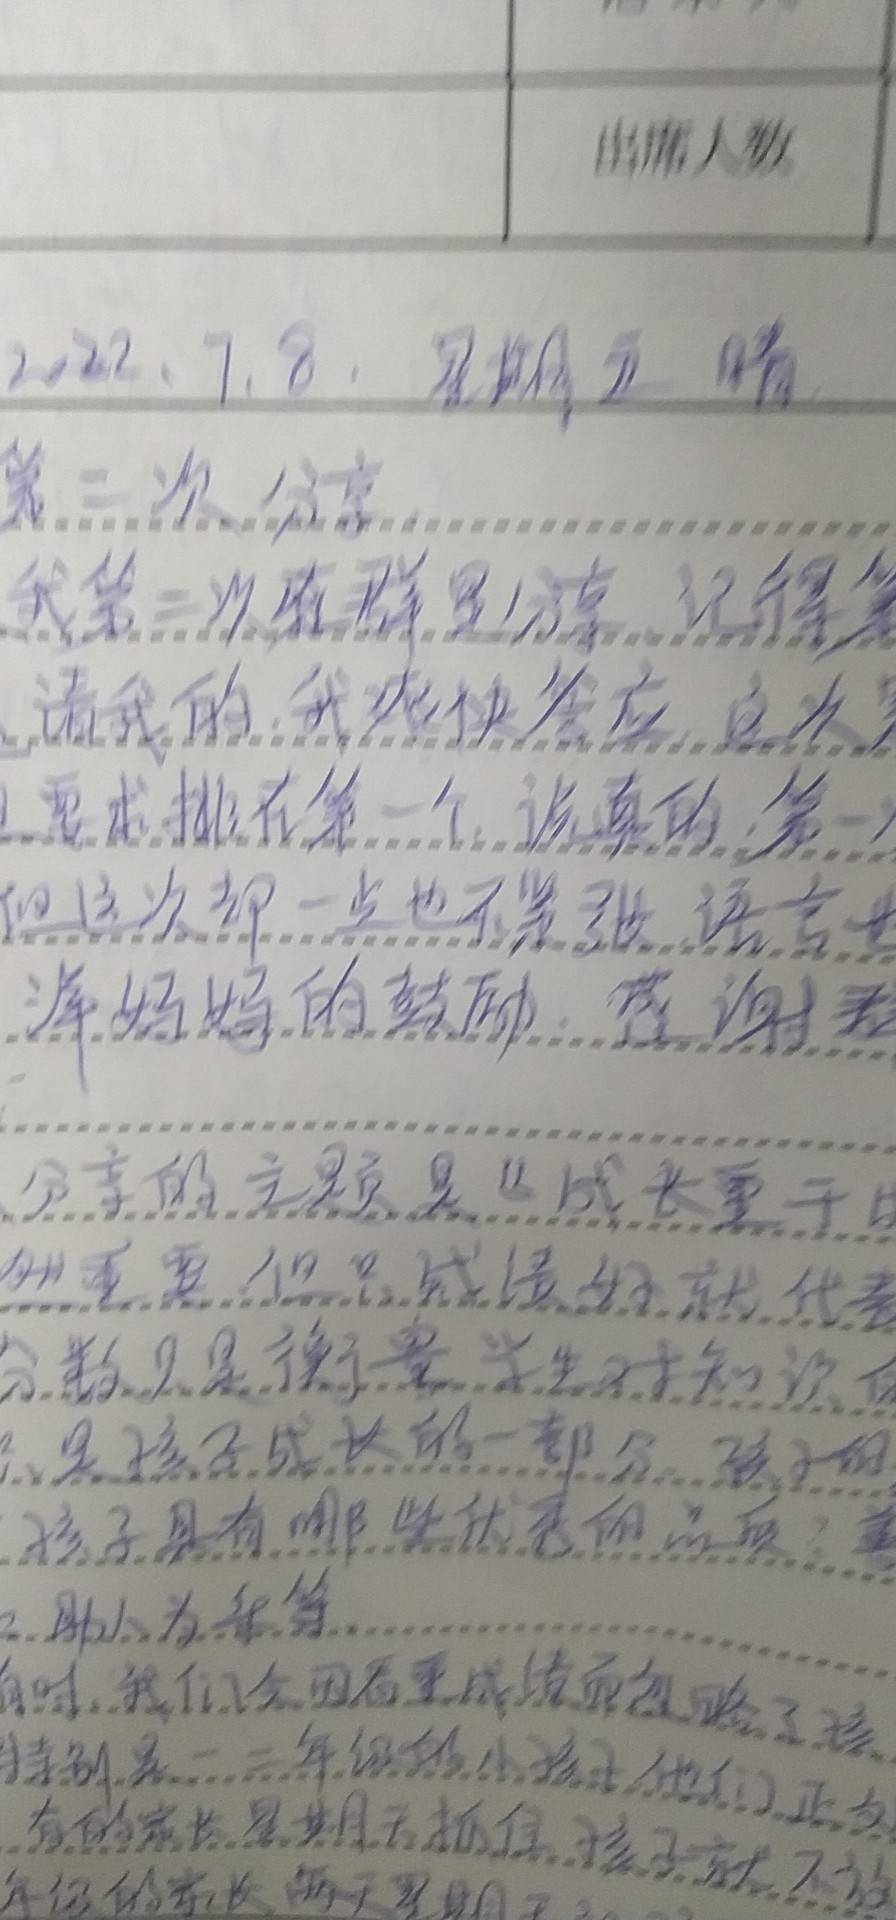 出席人数
2022.7.8. 星期五 晴
第二次分享
我第二次在群里分享 记得第
请我的.我爽快答应,这次
要求排在第一个.说真的,第一
但这次却一点也不紧张 语言也
洋妈妈的鼓励.感谢
分享的主题是《成长重于
重要,但只成绩好就代表
分数只是衡量学生对知识
是孩子成长的一部分.孩子的
孩子具有哪些优秀的品质?善
助人为乐等
有时.我们会因看重成绩而忽略了孩
特别是一二年级的小孩子他们正处
有的家长星期天抓住孩子就不放
年级的家长 两天星期天